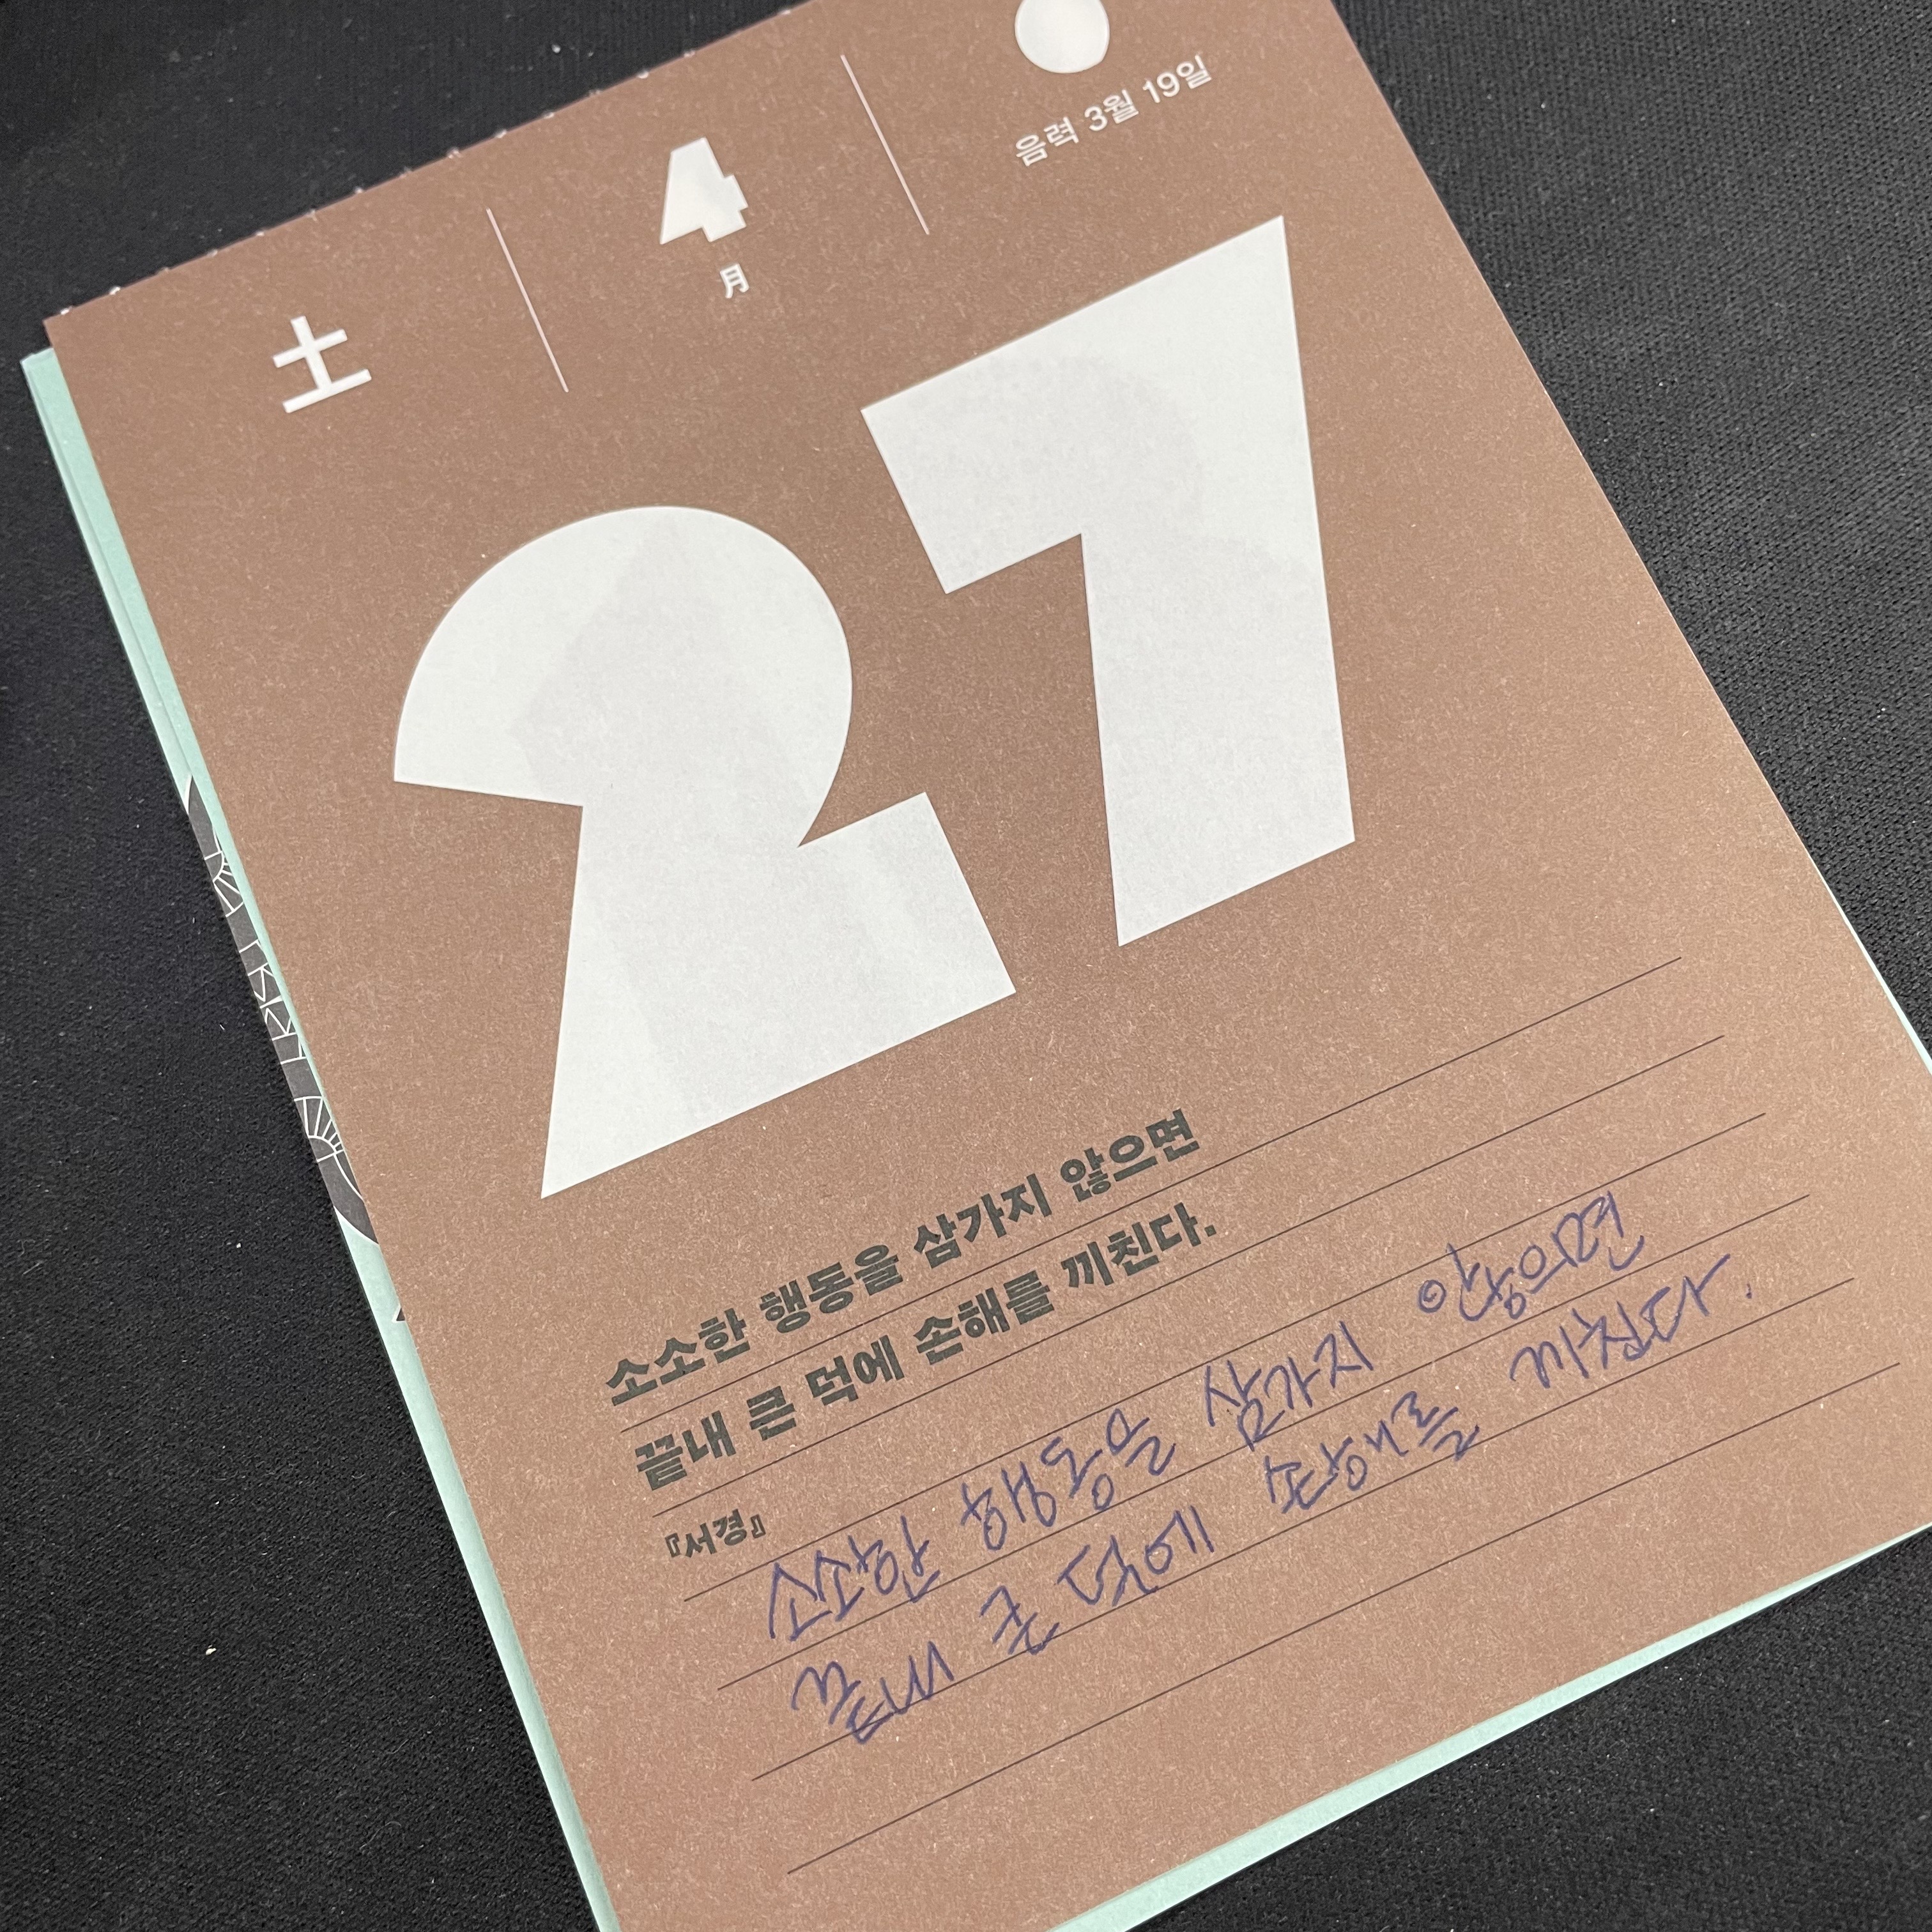 土
4
月
음력 3월 19일
27
소소한 행동을 삼가지 않으면
끝내 큰 덕에 손해를 끼친다.
『서경』
소소한 행동을 삼가지 않으면
끝내 큰 덕에 손해를 끼친다.